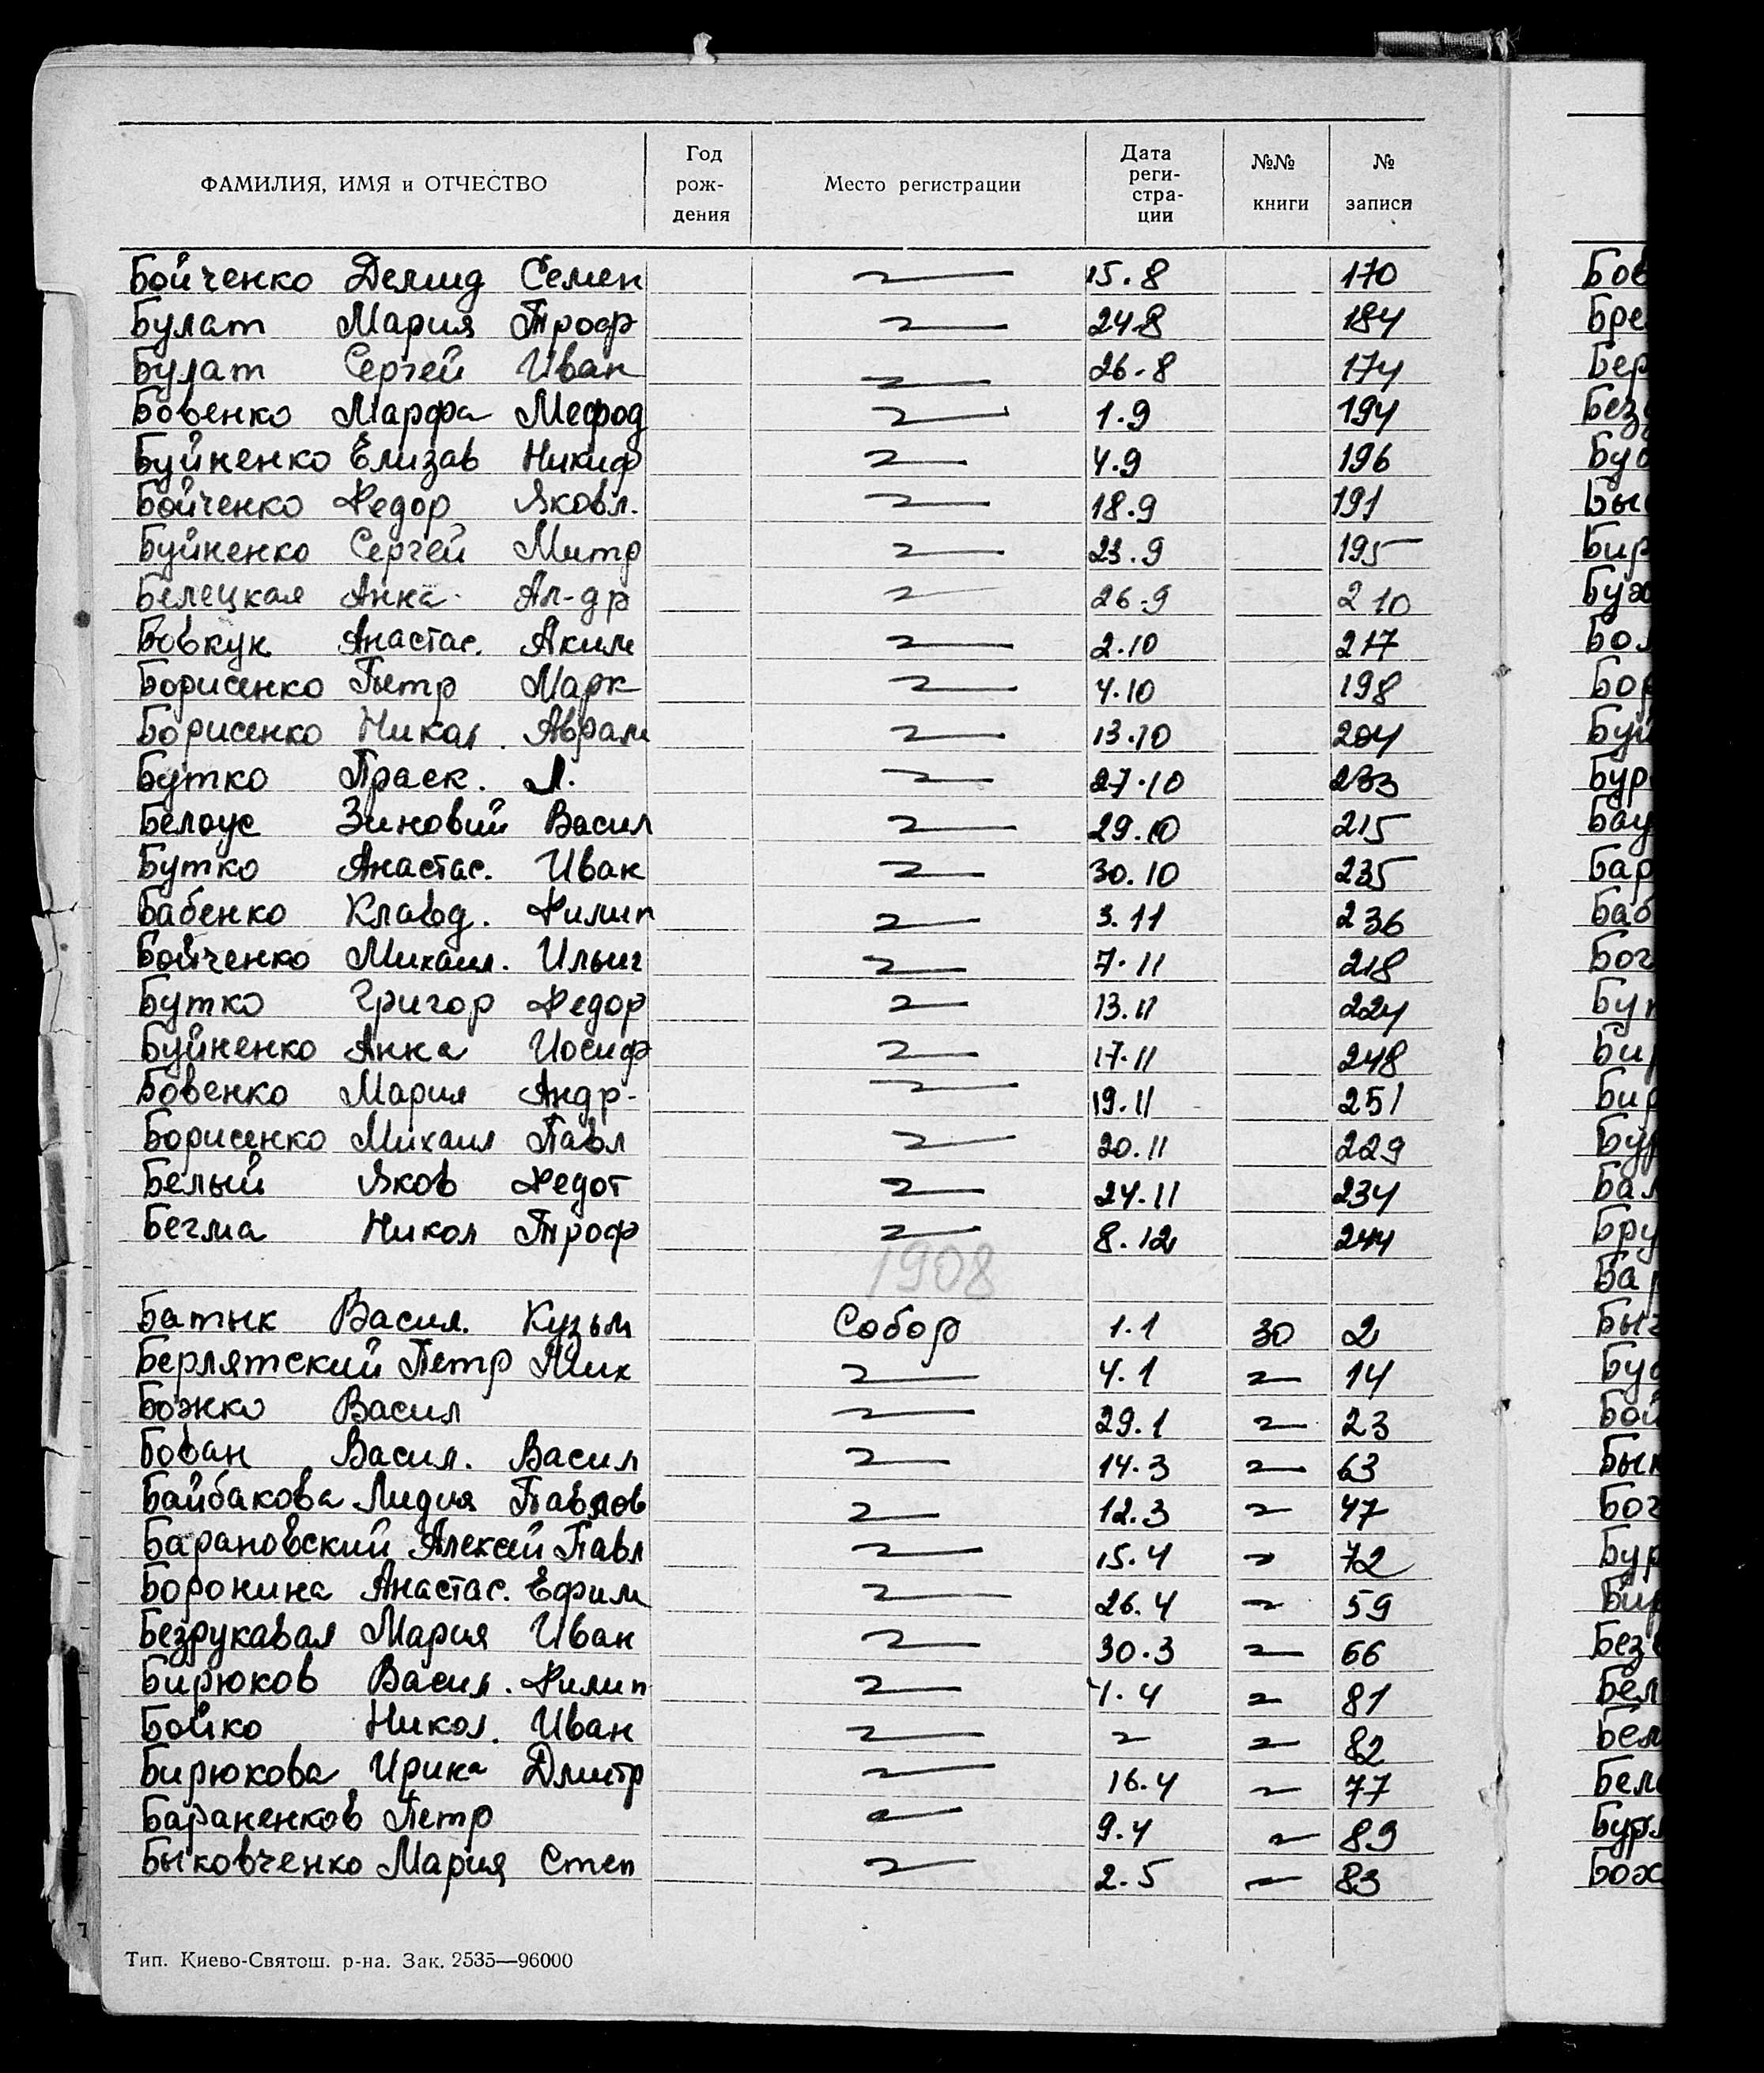 ФАМИЛИЯ, ИМЯ и ОТЧЕСТВО Год рож- дения Место регистрации Дата реги- стра- ции №№ книги № записи
Бойченко Демид Семен 15.8 170
Булат Мария Троф 24.8 184
Булат Сергей Иван 26.8 174
Бовенко Марфа Мефод 1.9 194
Буйненко Елизав Никиф 4.9 196
Бойченко Федор Яковл. 18.9 191
Буйненко Сергей Митр 23.9 195
Белецкая Анна Ал-др 26.9 210
Бовкун Анастас. Аким 2.10 217
Борисенко Петр Марк 4.10 198
Борисенко Никол. Аврам 13.10 204
Бутко Праск. Л. 27.10 233
Белоус Зиновий Васил 29.10 215
Бутко Анастас. Иван 30.10 235
Бабенко Клавд. Филип 3.11 236
Бойченко Михаил. Ильич 7.11 218
Бутко Григор Федор 13.11 224
Буйненко Анна Иосиф 17.11 248
Бовенко Мария Андр- 19.11 251
Борисенко Михаил Павл 20.11 229
Белый Яков Федот 24.11 234
Бегма Никол Троф 8.12 244
1908
Батык Васил. Кузьм Собор 1.1 30 2
Берлятский Петр Мих 4.1 14
Божко Васил 29.1 23
Бован Васил. Васил 14.3 63
Байбакова Лидия Павлов 12.3 47
Барановский Алексей Павл 15.4 72
Боронина Анастас. Ефим 26.4 59
Безрукавая Мария Иван 30.3 66
Бирюков Васил. Филип 4.4 81
Бойко Никол. Иван 82
Бирюкова Ирина Дмитр 16.4 77
Бараненков Петр 9.4 89
Быковченко Мария Степ 2.5 83
Тип. Киево-Святош. р-на. Зак. 2535—96000